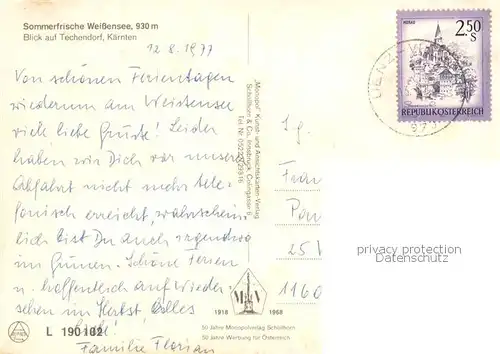 Sommerfrische Weißensee, 930 m
Blick auf Techendorf, Kärnten
12.8.1977
Von schönen Ferientagen
wiederum am Weissensee
viele liebe Grüße! Leider
haben wir Dich vor unserer
Abfahrt nicht mehr tele-
fonisch erreicht, wahrschein-
lich bist Du auch irgendwo
im Grünen. Schöne Ferien
u. hoffentlich auf Wieder-
sehen im Herbst. Alles
Liebe!
Familie Florian
L 190 102
"Monopol" Kunst- und Ansichtskarten-Verlag
Schöllhorn & Co., Innsbruck, Colingasse 6,
MSV
1918 1968
50 Jahre Monopolverlag Schöllhorn
50 Jahre Werbung für Österreich
MURAU
2.50
S
REPUBLIK ÖSTERREICH
977
Frau
25
1160
privacy protection
Datenschutz